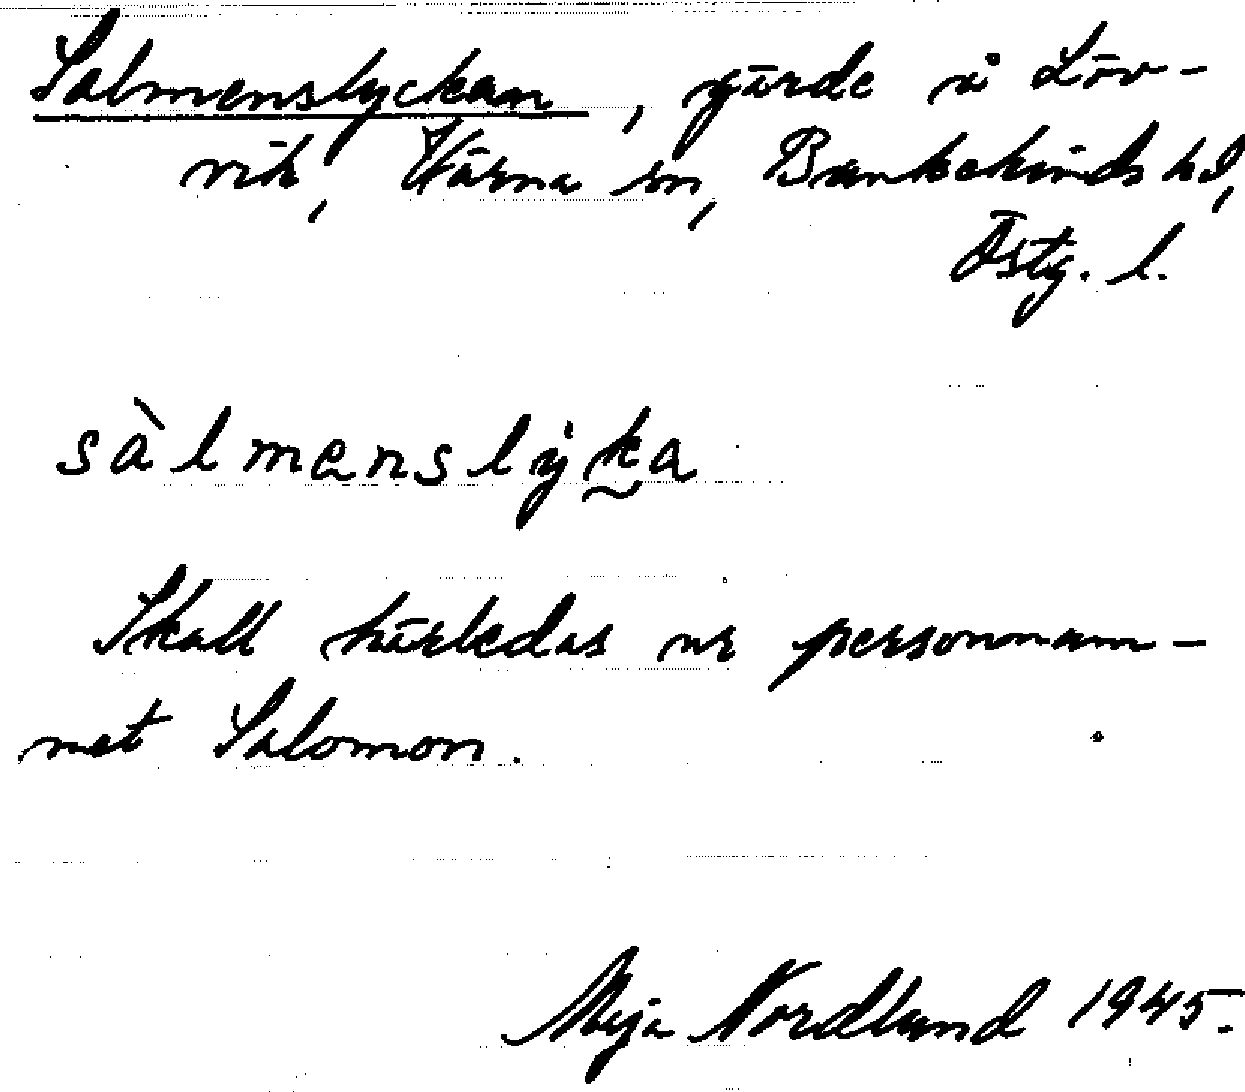 Salmenslyckan, gärde å Löv-
vik, Värna sn, Bankekinds hd,
Östg. l.
sàlmenslẏka
Skall härledas ur personnam-
net Salomon.
Maja Nordlund 1945.